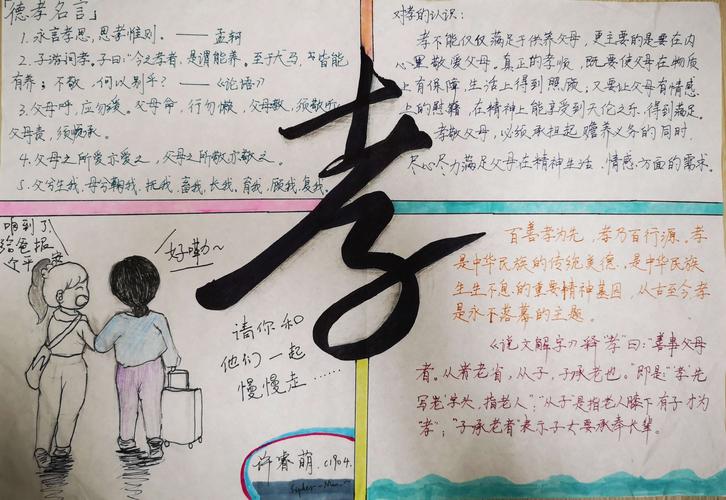 「德孝名言」
1.永言孝思,思孝惟则。——孟轲
2.子游问孝。子曰:“今之孝者,是谓能养。至于犬马,皆能
有养;不敬,何以别乎?——《论语》
3.父母呼,应勿缓。父母命,行勿懒,父母教,须敬听
父母责,须顺承。
4.父母之所爱亦爱之,父母之所敬亦敬之。
5.父兮生我,母兮鞠我,抚我,畜我,长我,育我,顾我,复我。
对孝的认识:
孝不能仅仅满足于供养父母,更主要的是要在内
心里敬爱父母。真正的孝顺,既要使父母在物质
上有保障,生活上得到照顾;又要让父母有情感
上的慰藉,在精神上能享受到天伦之乐,得到满足。
孝敬父母,必须承担起赡养义务的同时,
尽心尽力满足父母在精神生活、情感方面的需求。
孝
咱到了
给爸报
个平安
好嘞~
请你和
他们一起
慢慢走……
百善孝为先,孝乃百行源,孝
是中华民族的传统美德,是中华民族
生生不息的重要精神基因,从古至今,孝
是永不落幕的主题。
《说文解字》释“孝”曰:“善事父母
者。从老省,从子,子承老也。”即是“孝”先
写老字头,指老人”;“从子”是指老人膝下有子才为
“孝”;“子承老者”表示子女要承奉长辈。
许睿萌.C1904.